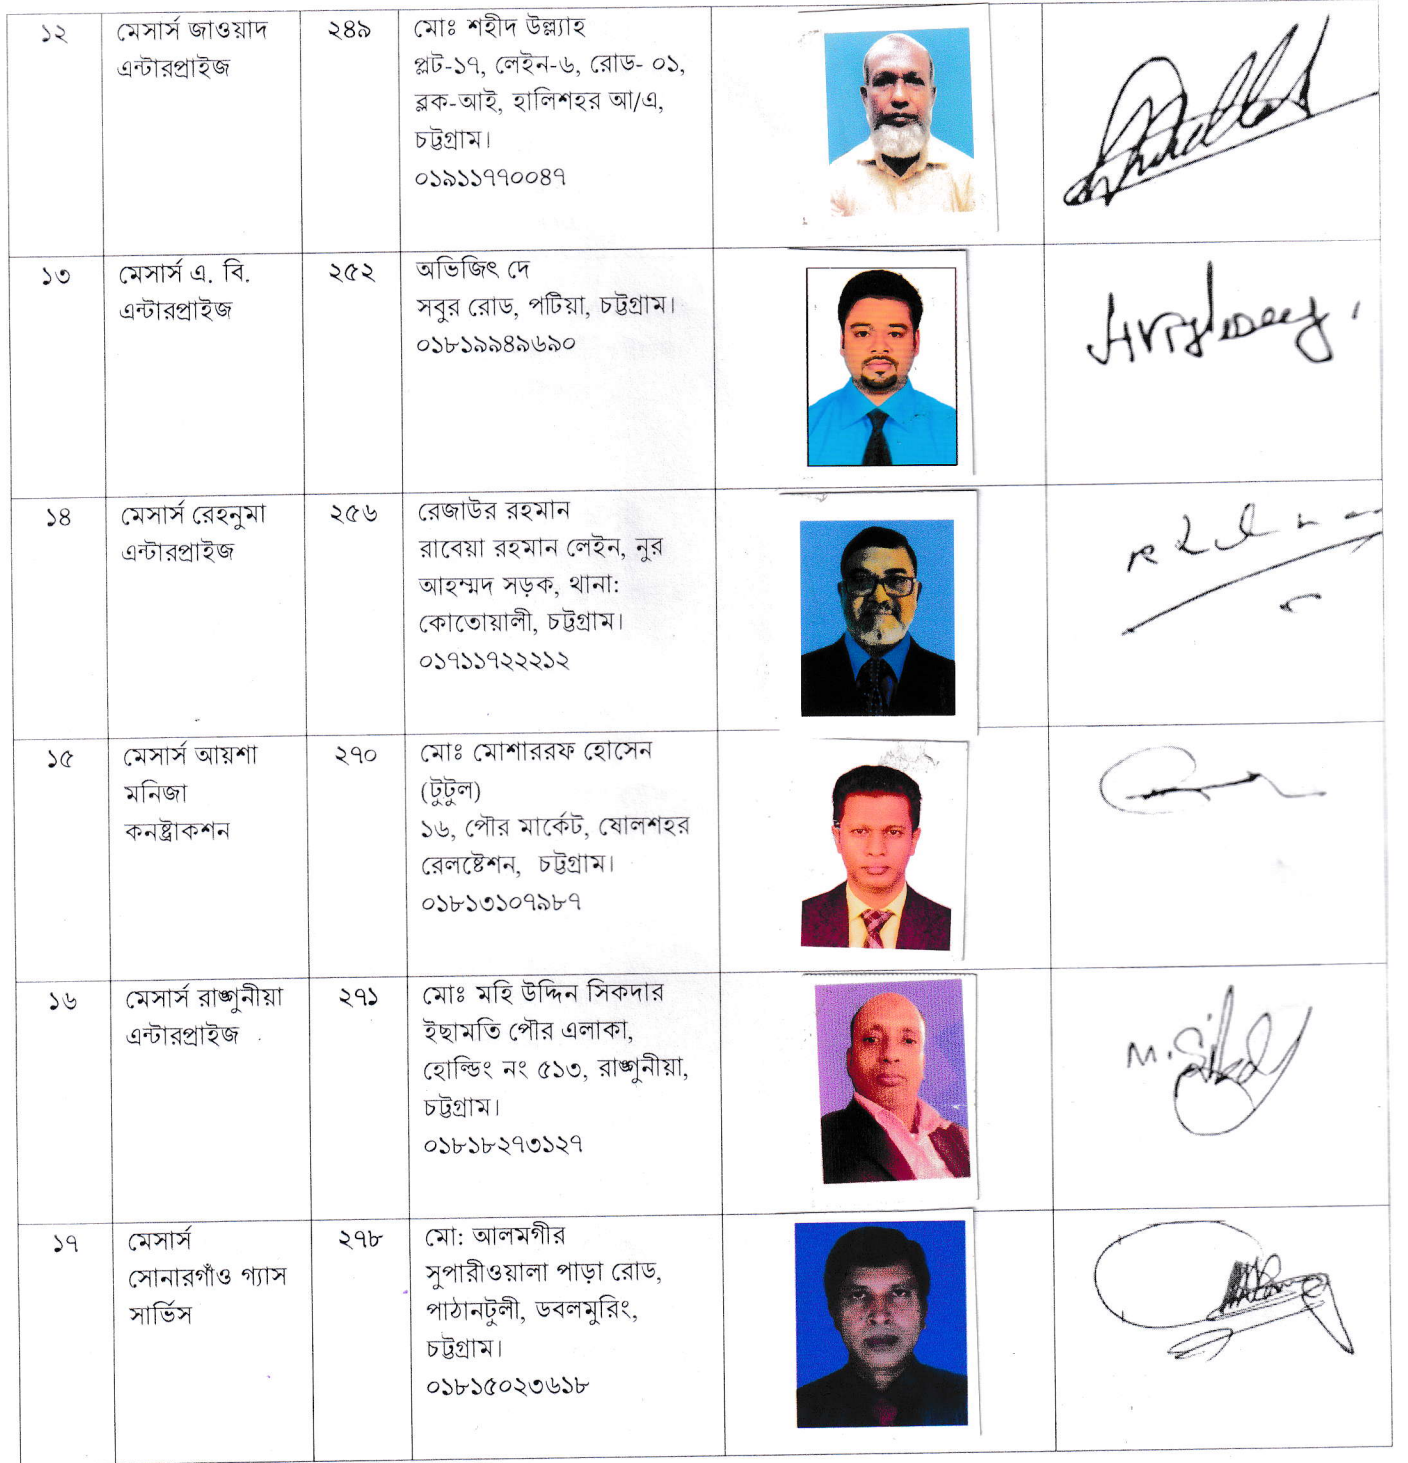 ১২
মেসার্স জাওয়াদ
এন্টারপ্রাইজ
২৪৯
মোঃ শহীদ উল্ল্যাহ
প্লট-১৭, লেইন-৬, রোড- ০১,
ব্লক-আই, হালিশহর আ/এ,
চট্টগ্রাম।
০১৯১১৭৭০০৪৭
১৩
মেসার্স এ. বি.
এন্টারপ্রাইজ
২৫২
অভিজিৎ দে
সবুর রোড, পটিয়া, চট্টগ্রাম।
০১৮১৯৯৪৯৬৯০
১৪
মেসার্স রেহনুমা
এন্টারপ্রাইজ
২৫৬
রেজাউর রহমান
রাবেয়া রহমান লেইন, নুর
আহম্মদ সড়ক, থানা:
কোতোয়ালী, চট্টগ্রাম।
০১৭১১৭২২২১২
১৫
মেসার্স আয়শা
মনিজা
কনষ্ট্রাকশন
২৭০
মোঃ মোশাররফ হোসেন
(টুটুল)
১৬, পৌর মার্কেট, ষোলশহর
রেলষ্টেশন, চট্টগ্রাম।
০১৮১৩১০৭৯৮৭
১৬
মেসার্স রাঙ্গুনীয়া
এন্টারপ্রাইজ
২৭১
মোঃ মহি উদ্দিন সিকদার
ইছামতি পৌর এলাকা,
হোল্ডিং নং ৫১৩, রাঙ্গুনীয়া,
চট্টগ্রাম।
০১৮১৮২৭৩১২৭
১৭
মেসার্স
সোনারগাঁও গ্যাস
সার্ভিস
২৭৮
মো: আলমগীর
সুপারীওয়ালা পাড়া রোড,
পাঠানটুলী, ডবলমুরিং,
চট্টগ্রাম।
০১৮১৫০২৩৬১৮